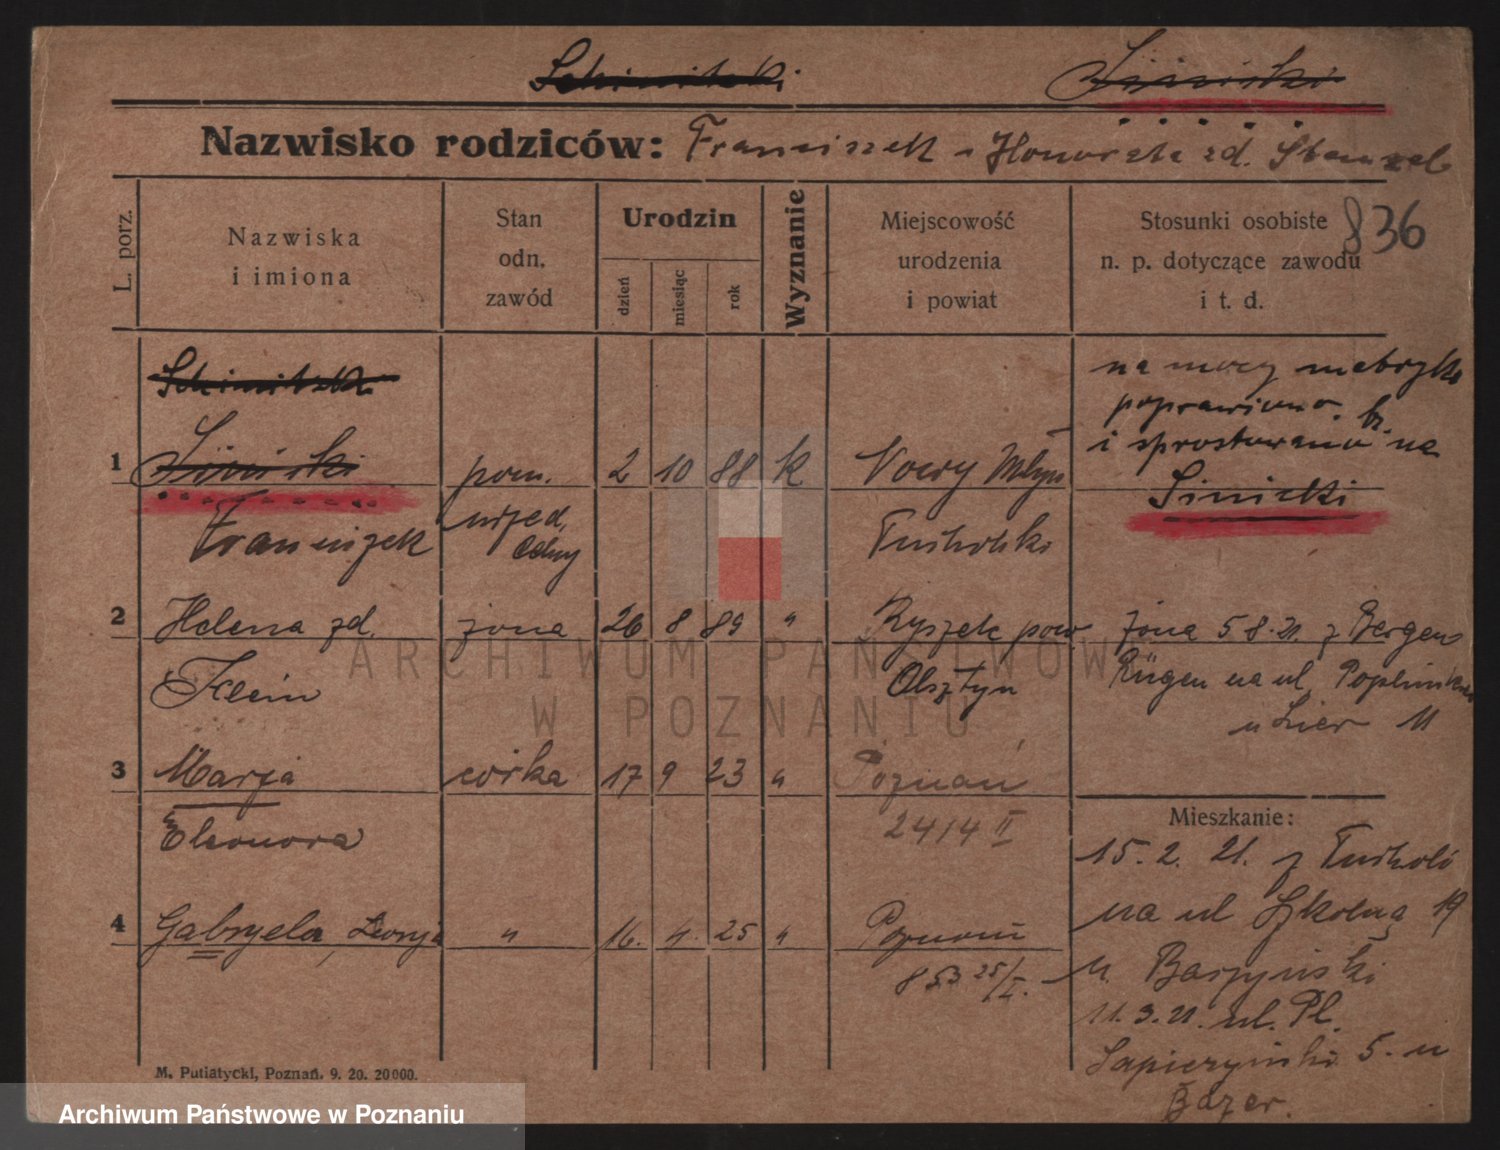 Nazwisko rodziców: Franciszek - Honorata zd.
L. porz.
Nazwiska
i imiona
Stan
odn.
zawód
Urodzin
dzień
miesiąc
rok
Wyznanie
Miejscowość
urodzenia
i powiat
Stosunki osobiste
n. p. dotyczące zawodu
i t. d.
836
na mocy metryki
poprawiono
i sprostowano na
Siniecki
1
pom. 2 10 88 k Nowy Młyn
Franciszek
2 Helena zd. żona 26 8 89 " Ryszek pow
Klein Olsztyn
żona 5 8. 21. z Bergen
Rügen na ul.
u 11
3 Marja córka 17 9 23 " Poznań
Eleonora 2414 II
4 Gabryela, " 16. 4. 25 " Poznań
853 25/I.
Mieszkanie:
15. 2. 21. z Tucholi
na ul Szkolną 19
u.
11. 3. 21. ul. Pl.
Sapieżyński 5. u
M. Putiatycki, Poznań. 9. 20. 20000.
ARCHIWUM PAŃSTWOWE
W POZNANIU
Archiwum Państwowe w Poznaniu